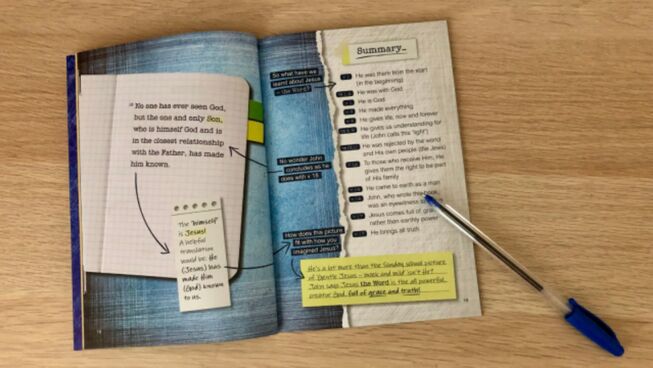 " No one has ever seen God,
but the one and only Son,
who is himself God and is
in the closest relationship
with the Father, has made
him known.
The "himself"
is Jesus!
A helpful
translation
would be: He
(Jesus) has
made Him
(God) known
to us.
So what have we
learnt about Jesus
– the Word?
No wonder John
concludes as he
does with v 18
How does this picture
fit with how you
imagined Jesus?
Summary_
He was there from the start
(in the beginning)
He was with God
He is God
He made everything
He gives life, now and forever
He gives us understanding for
life (John calls this "light")
He was rejected by the world
and His own people (the Jews)
To those who receive Him, He
gives them the right to be part
of His family
He came to earth as a man
John, who wrote this book,
was an eyewitness
Jesus comes full of
rather than earthly power
He brings all truth
He's a lot more than the Sunday school picture
of 'Gentle Jesus – meek and mild' isn't He?
John says Jesus the Word is the all powerful,
creator God, full of grace and truth!